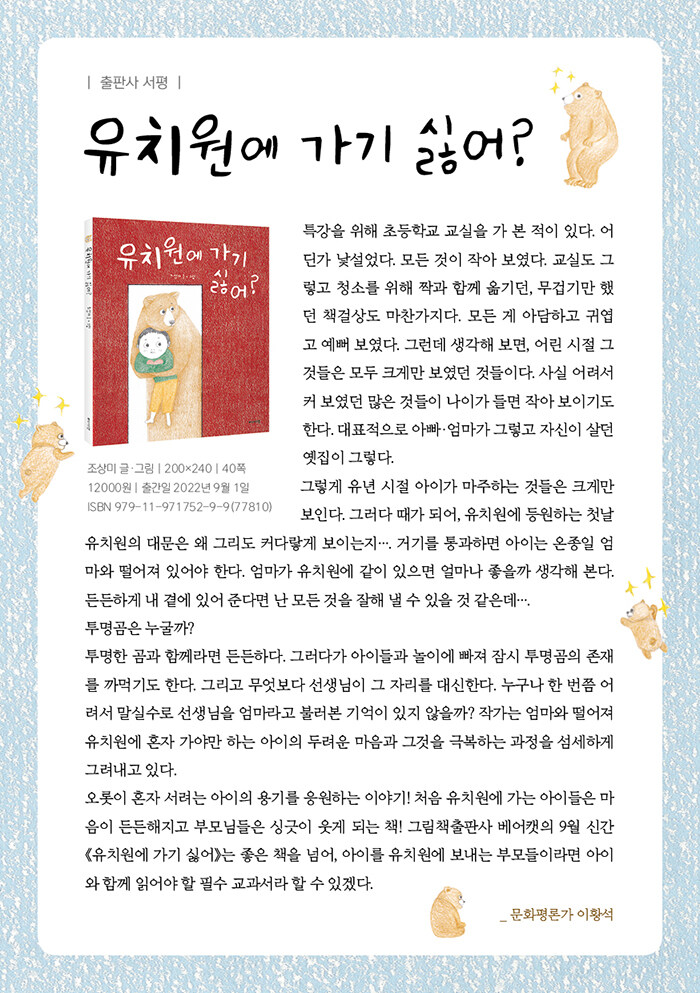 | 출판사 서평 |
유치원에 가기 싫어?
유치원에 가기
싫어?
특강을 위해 초등학교 교실을 가 본 적이 있다. 어
딘가 낯설었다. 모든 것이 작아 보였다. 교실도 그
렇고 청소를 위해 짝과 함께 옮기던, 무겁기만 했
던 책걸상도 마찬가지다. 모든 게 아담하고 귀엽
고 예뻐 보였다. 그런데 생각해 보면, 어린 시절 그
것들은 모두 크게만 보였던 것들이다. 사실 어려서
커 보였던 많은 것들이 나이가 들면 작아 보이기도
한다. 대표적으로 아빠·엄마가 그렇고 자신이 살던
옛집이 그렇다.
조상미 글·그림 | 200×240 | 40쪽
12000원 | 출간일 2022년 9월 1일
ISBN 979-11-971752-9-9(77810)
그렇게 유년 시절 아이가 마주하는 것들은 크게만
보인다. 그러다 때가 되어, 유치원에 등원하는 첫날
유치원의 대문은 왜 그리도 커다랗게 보이는지…. 거기를 통과하면 아이는 온종일 엄
마와 떨어져 있어야 한다. 엄마가 유치원에 같이 있으면 얼마나 좋을까 생각해 본다.
든든하게 내 곁에 있어 준다면 난 모든 것을 잘해 낼 수 있을 것 같은데….
투명곰은 누굴까?
투명한 곰과 함께라면 든든하다. 그러다가 아이들과 놀이에 빠져 잠시 투명곰의 존재
를 까먹기도 한다. 그리고 무엇보다 선생님이 그 자리를 대신한다. 누구나 한 번쯤 어
려서 말실수로 선생님을 엄마라고 불러본 기억이 있지 않을까? 작가는 엄마와 떨어져
유치원에 혼자 가야만 하는 아이의 두려운 마음과 그것을 극복하는 과정을 섬세하게
그려내고 있다.
오롯이 혼자 서려는 아이의 용기를 응원하는 이야기! 처음 유치원에 가는 아이들은 마
음이 든든해지고 부모님들은 싱긋이 웃게 되는 책! 그림책출판사 베어캣의 9월 신간
《유치원에 가기 싫어》는 좋은 책을 넘어, 아이를 유치원에 보내는 부모들이라면 아이
와 함께 읽어야 할 필수 교과서라 할 수 있겠다.
_ 문화평론가 이황석